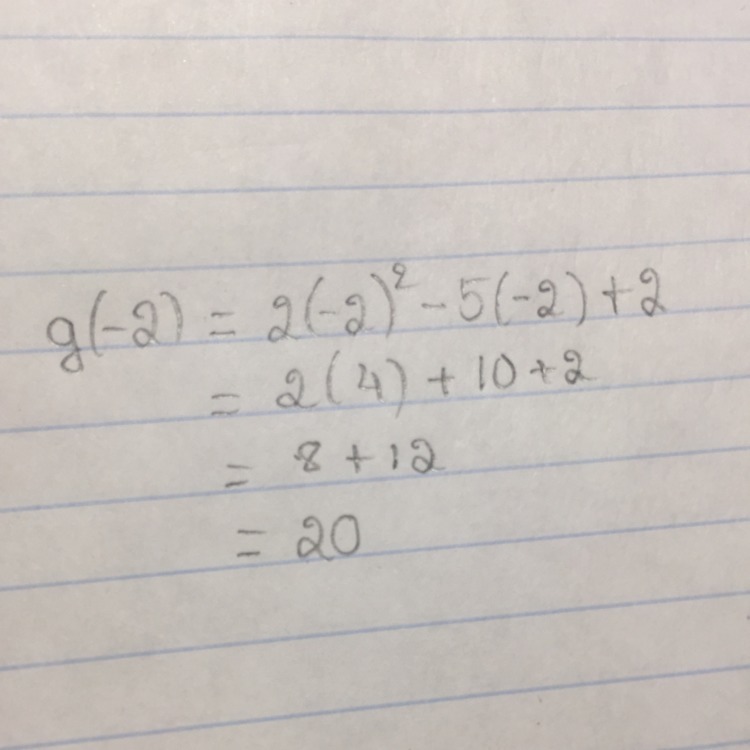 g(-2) = 2(-2)² - 5(-2) + 2
= 2(4) + 10 + 2
= 8 + 12
= 20